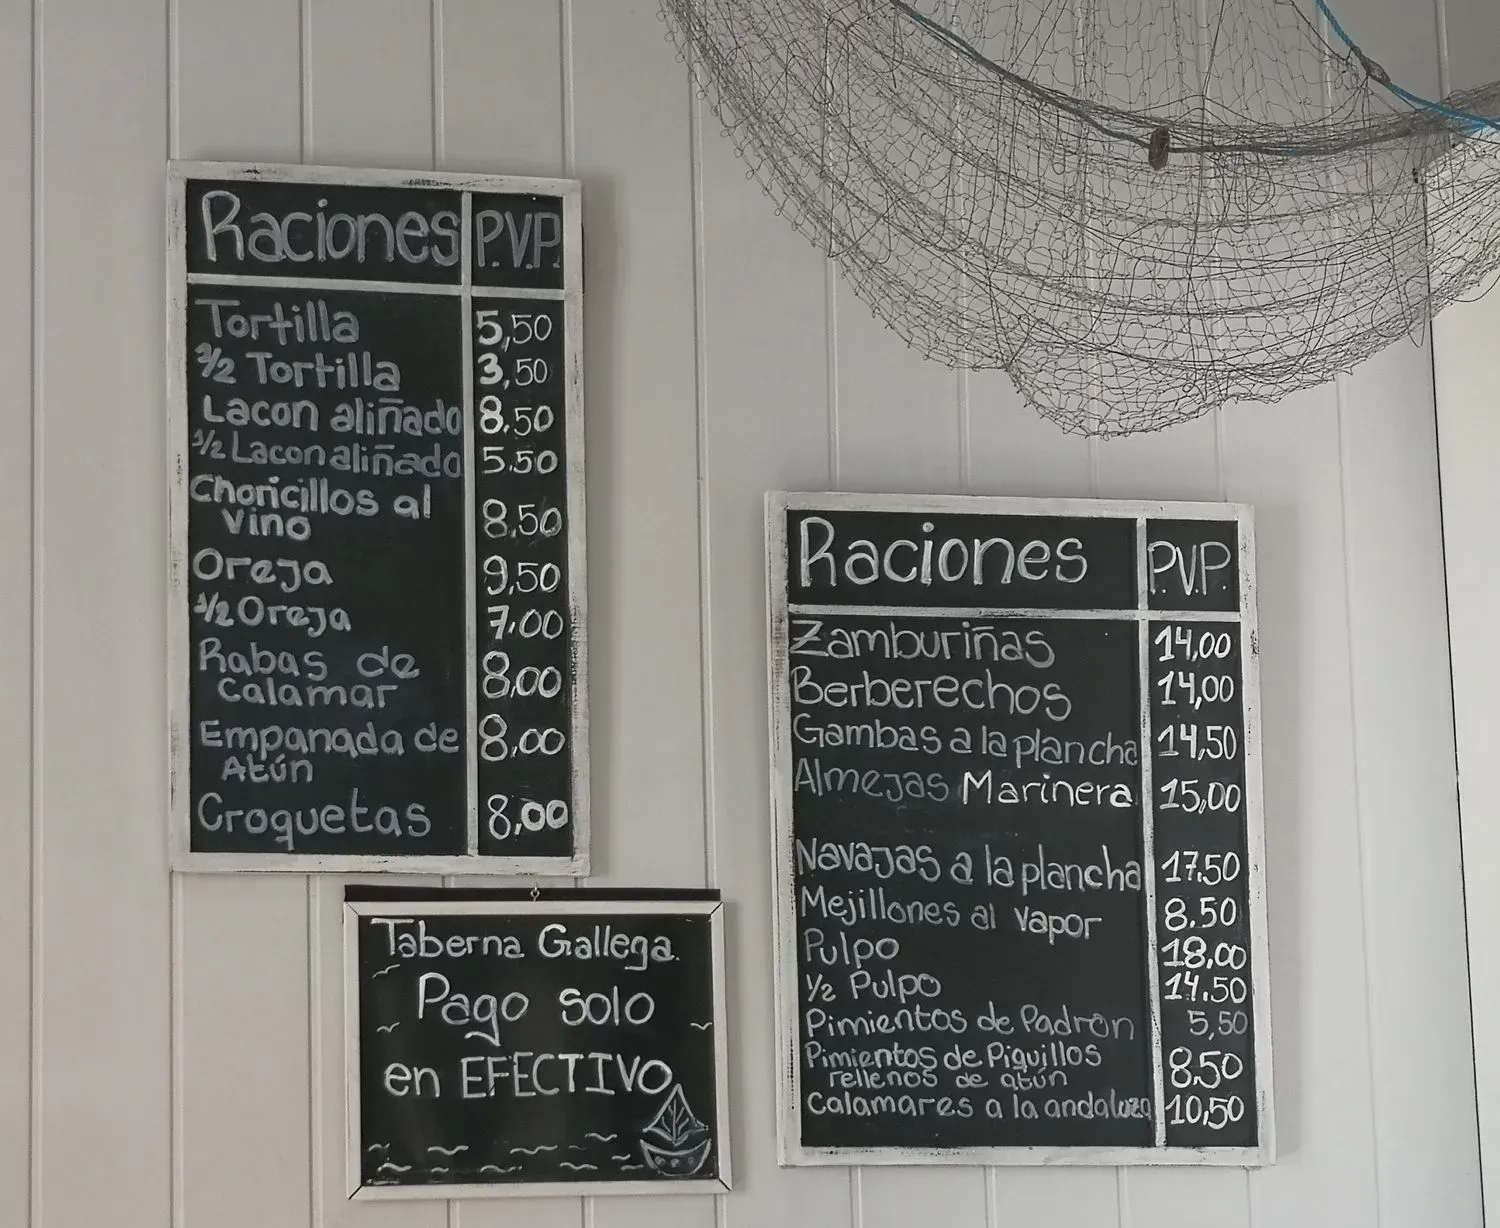 Raciones P.V.P.
Tortilla 5,50
1/2 Tortilla 3,50
Lacon aliñado 8,50
1/2 Lacon aliñado 5.50
Choricillos al
vino 8,50
Oreja 9,50
1/2 Oreja 7,00
Rabas de
calamar 8,00
Empanada de
Atún 8,00
Croquetas 8,00
Taberna Gallega.
Pago solo
en EFECTIVO
Raciones P.V.P.
Zamburiñas 14,00
Berberechos 14,00
Gambas a la plancha 14,50
Almejas Marinera 15,00
Navajas a la plancha 17.50
Mejillones al vapor 8.50
Pulpo 18,00
1/2 Pulpo 14.50
Pimientos de Padron 5,50
Pimientos de Piquillos
rellenos de atún 8,50
Calamares a la andaluza 10,50